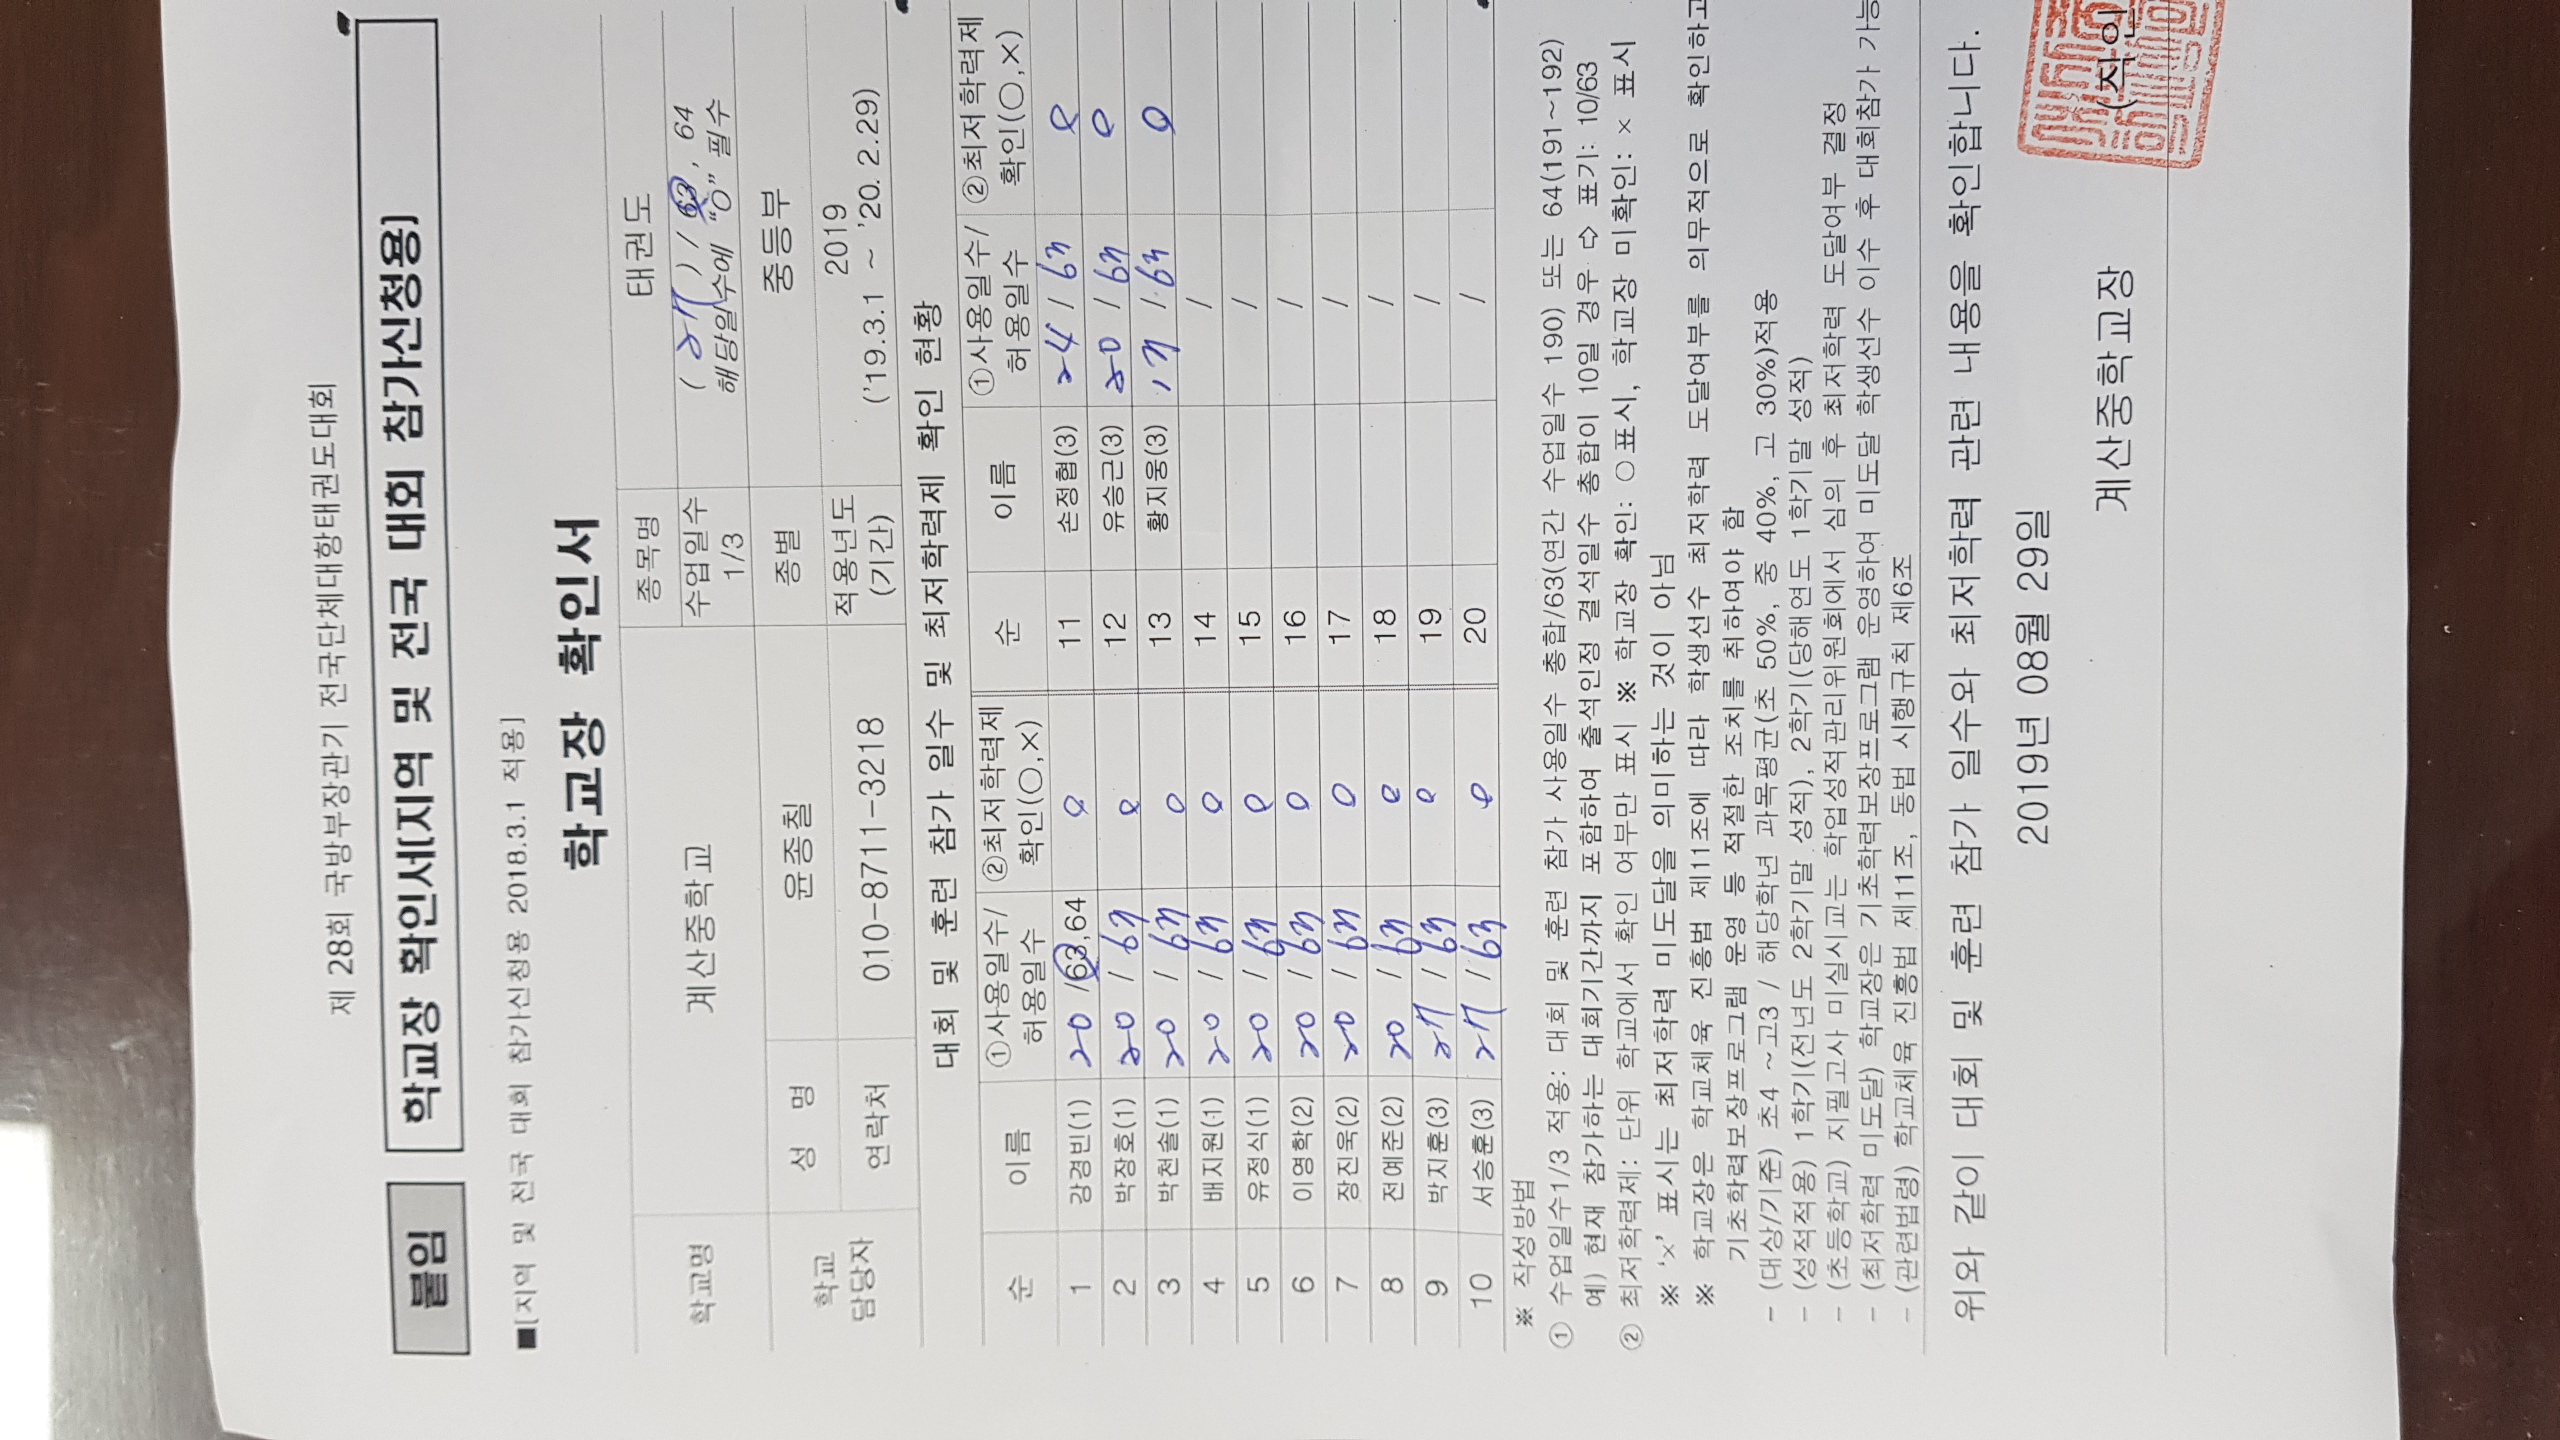 제 28회 국방부장관기 전국단체대항태권도대회
붙임 학교장 확인서(지역 및 전국 대회 참가신청용)
■[지역 및 전국 대회 참가신청용 2018.3.1 적용]
학교장 확인서
학교명 계산중학교 종목명 태권도
수업일수 1/3 ( 27 ) / 63, 64
해당일수에 "O" 필수
학교 담당자 성 명 윤종칠 종별 중등부
연락처 010-8711-3218 적용년도 (기간) 2019
('19.3.1 ~ '20. 2.29)
대회 및 훈련 참가 일수 및 최저학력제 확인 현황
순 이름 ①사용일수/허용일수 ②최저학력제 확인(○,×) 순 이름 ①사용일수/허용일수 ②최저학력제 확인(○,×)
1 강경빈(1) 20 /63,64 o 11 손정협(3) 24 / 63 o
2 박장호(1) 20 / 63 o 12 유승근(3) 20 / 63 o
3 박천솔(1) 20 / 63 o 13 황지웅(3) 13 / 63 o
4 배지원(1) 20 / 63 o 14 /
5 유정식(1) 20 / 63 o 15 /
6 이영학(2) 20 / 63 o 16 /
7 장진욱(2) 20 / 63 o 17 /
8 전예준(2) 20 / 63 o 18 /
9 박지훈(3) 27 / 63 o 19 /
10 서승훈(3) 27 / 63 o 20 /
※ 작성방법
① 수업일수1/3 적용: 대회 및 훈련 참가 사용일수 총합/63(연간 수업일수 190) 또는 64(191~192)
예) 현재 참가하는 대회기간까지 포함하여 출석인정 결석일수 총합이 10일 경우 ⇨ 표기: 10/63
② 최저학력제: 단위 학교에서 확인 여부만 표시 ※ 학교장 확인: ○표시, 학교장 미확인: × 표시
※ '×' 표시는 최저학력 미도달을 의미하는 것이 아님
※ 학교장은 학교체육 진흥법 제11조에 따라 학생선수 최저학력 도달여부를 의무적으로 확인하고
기초학력보장프로그램 운영 등 적절한 조치를 취하여야 함
- (대상/기준) 초4 ~고3 / 해당학년 과목평균(초 50%, 중 40%, 고 30%)적용
- (성적적용) 1학기(전년도 2학기말 성적), 2학기(당해연도 1학기말 성적)
- (초등학교) 지필고사 미실시교는 학업성적관리위원회에서 심의 후 최저학력 도달여부 결정
- (최저학력 미도달) 학교장은 기초학력보장프로그램 운영하여 미도달 학생선수 이수 후 대회참가 가능
- (관련법령) 학교체육 진흥법 제11조, 동법 시행규칙 제6조
위와 같이 대회 및 훈련 참가 일수와 최저학력 관련 내용을 확인합니다.
2019년 08월 29일
계산중학교장 (직인